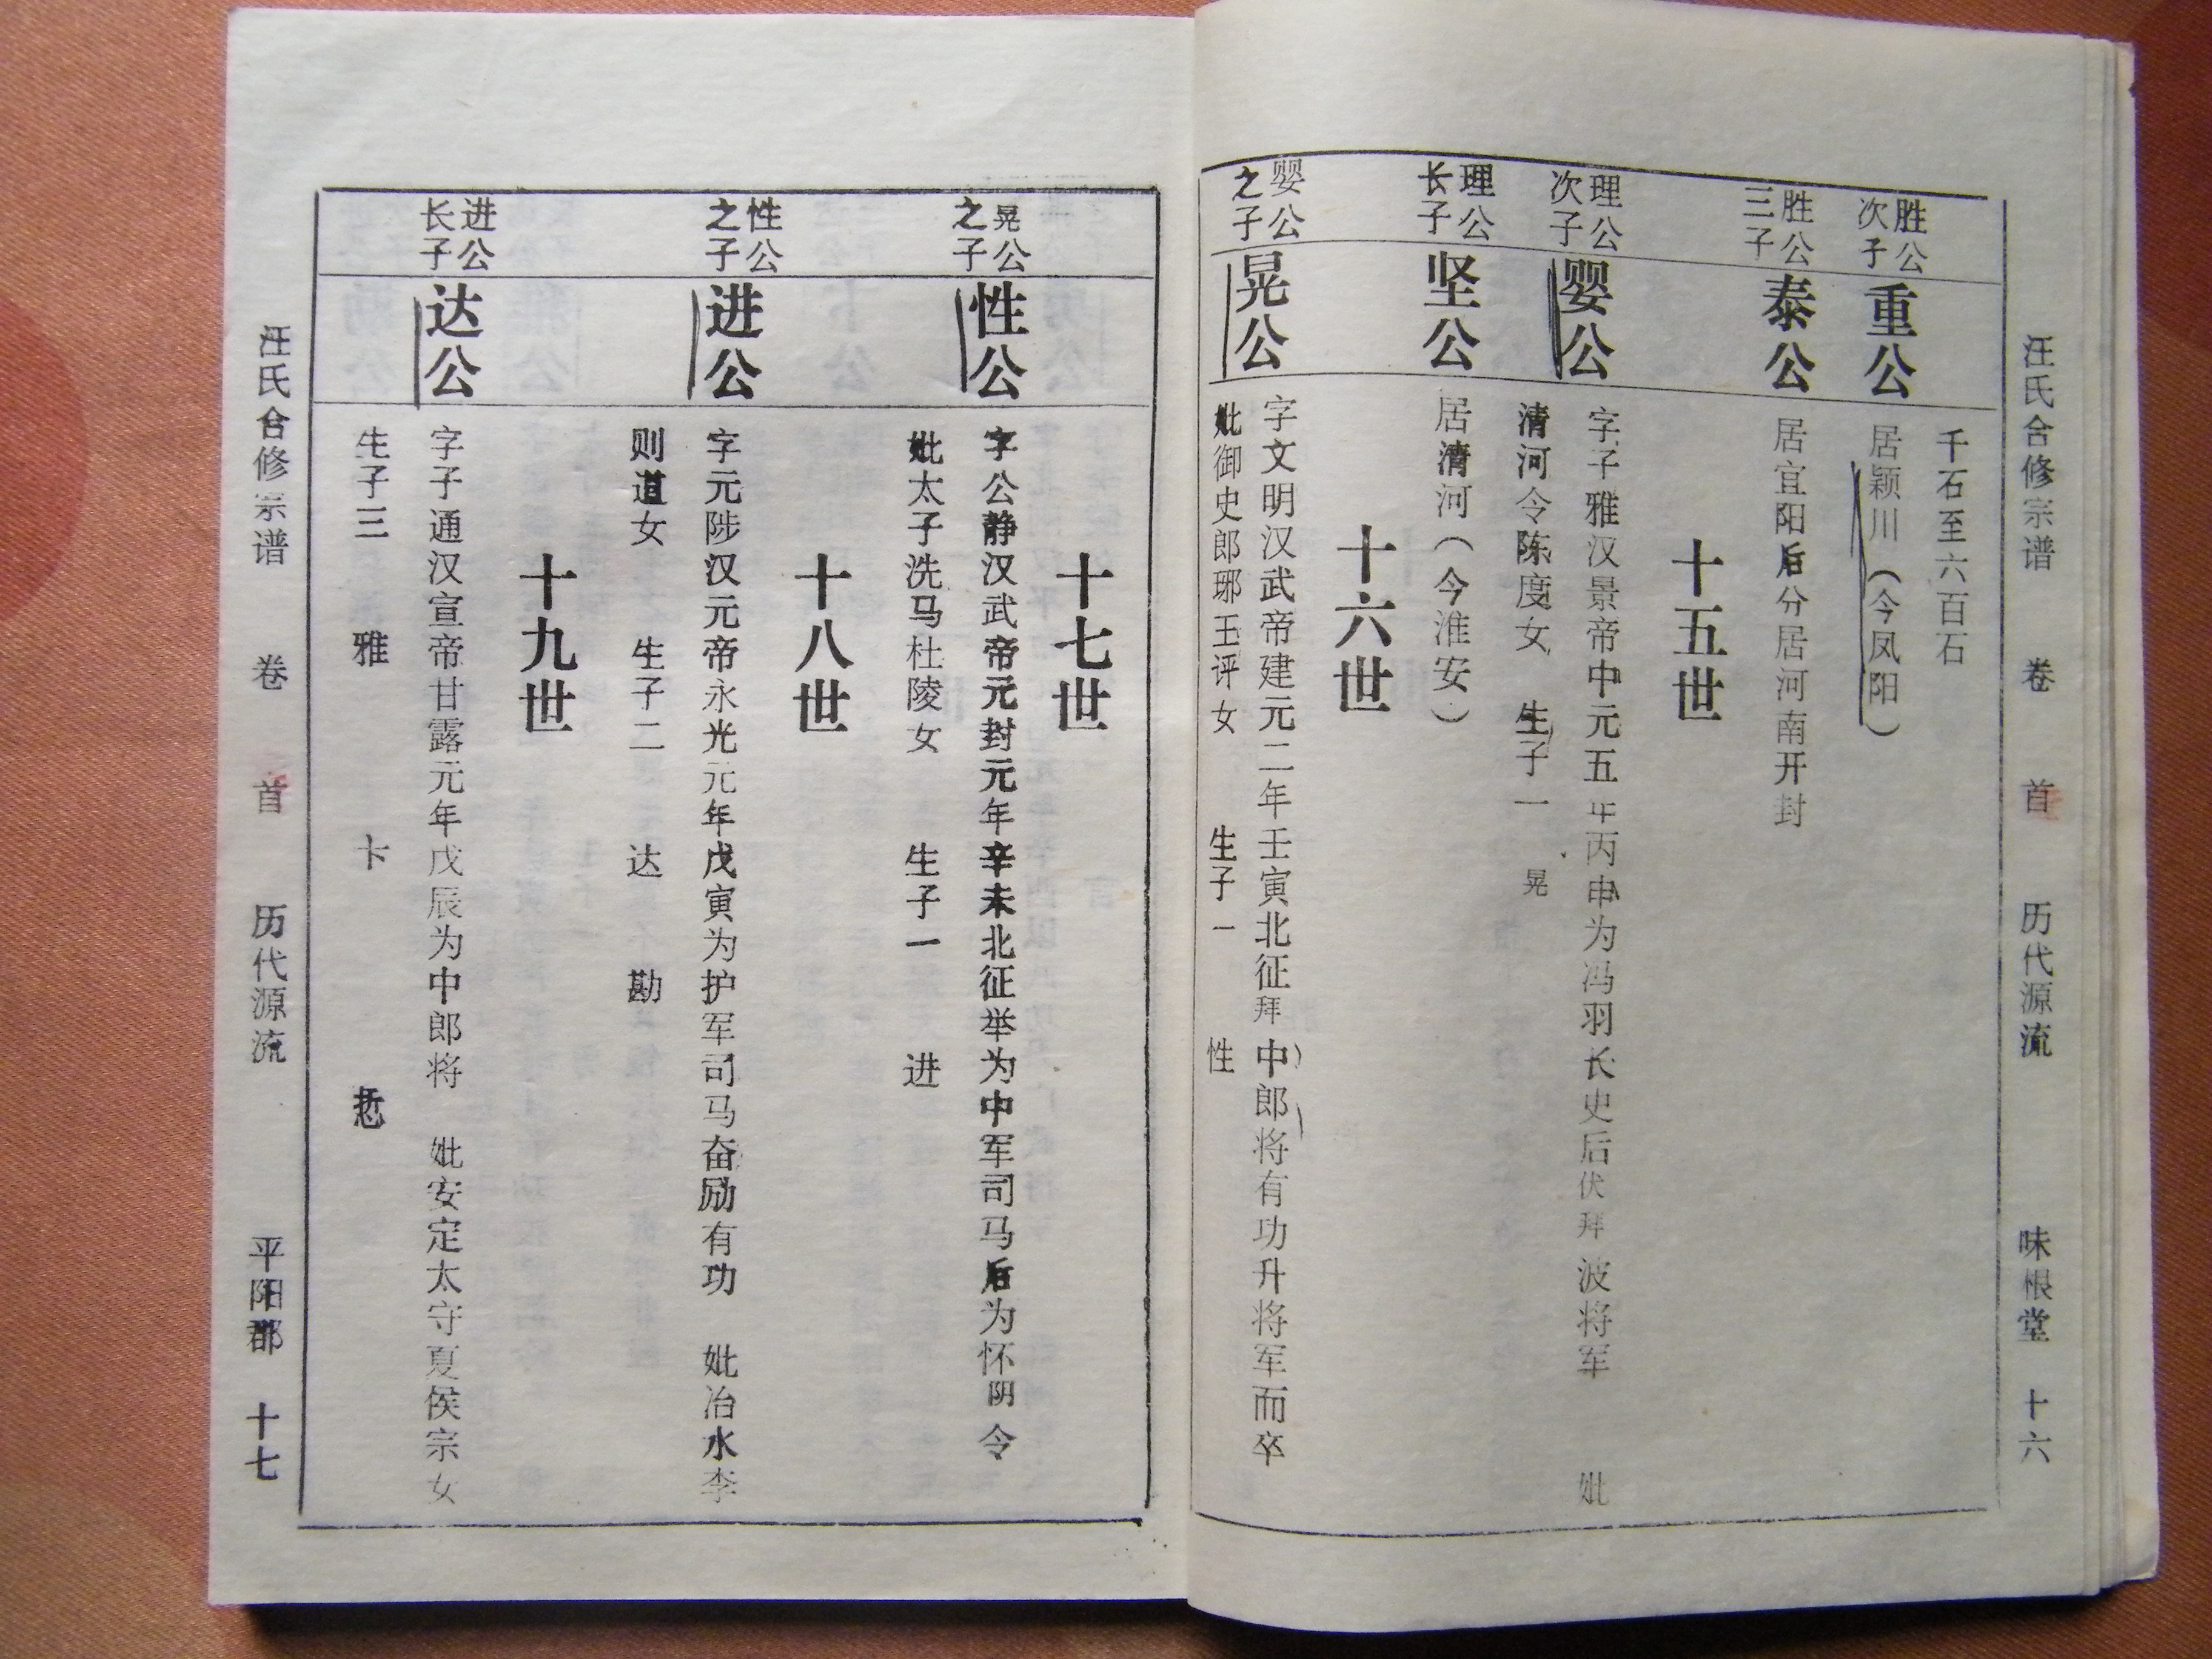 汪氏合修宗谱 卷 首 历代源流 味根堂 十六
千石至六百石
胜公次子
重公
居颖川（今凤阳）
胜公三子
泰公
居宜阳后分居河南开封
十五世
理公次子
婴公
字子雅汉景帝中元五年丙申为冯羽长史后伏拜波将军 妣
清河令陈度女 生子一 晃
理公长子
坚公
居清河（今淮安）
十六世
婴公之子
晃公
字文明汉武帝建元二年壬寅北征拜中郎将有功升将军而卒
妣御史郎琊王评女 生子一 性
十七世
晃公之子
性公
字公静汉武帝元封元年辛未北征举为中军司马后为怀阴令
妣太子洗马杜陵女 生子一 进
十八世
性公之子
进公
字元陟汉元帝永光元年戊寅为护军司马奋励有功 妣冶水李
则道女 生子二 达 勘
十九世
进公长子
达公
字子通汉宣帝甘露元年戊辰为中郎将 妣安定太守夏侯宗女
生子三 雅 卞
汪氏合修宗谱 卷 首 历代源流 平阳郡 十七